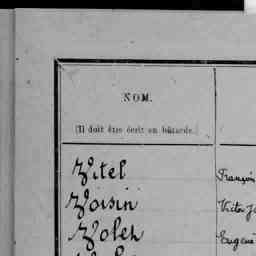 NOM.
(Il doit être écrit en bâtarde.)
Vitel François
Voisin Victor
Volet Eugène